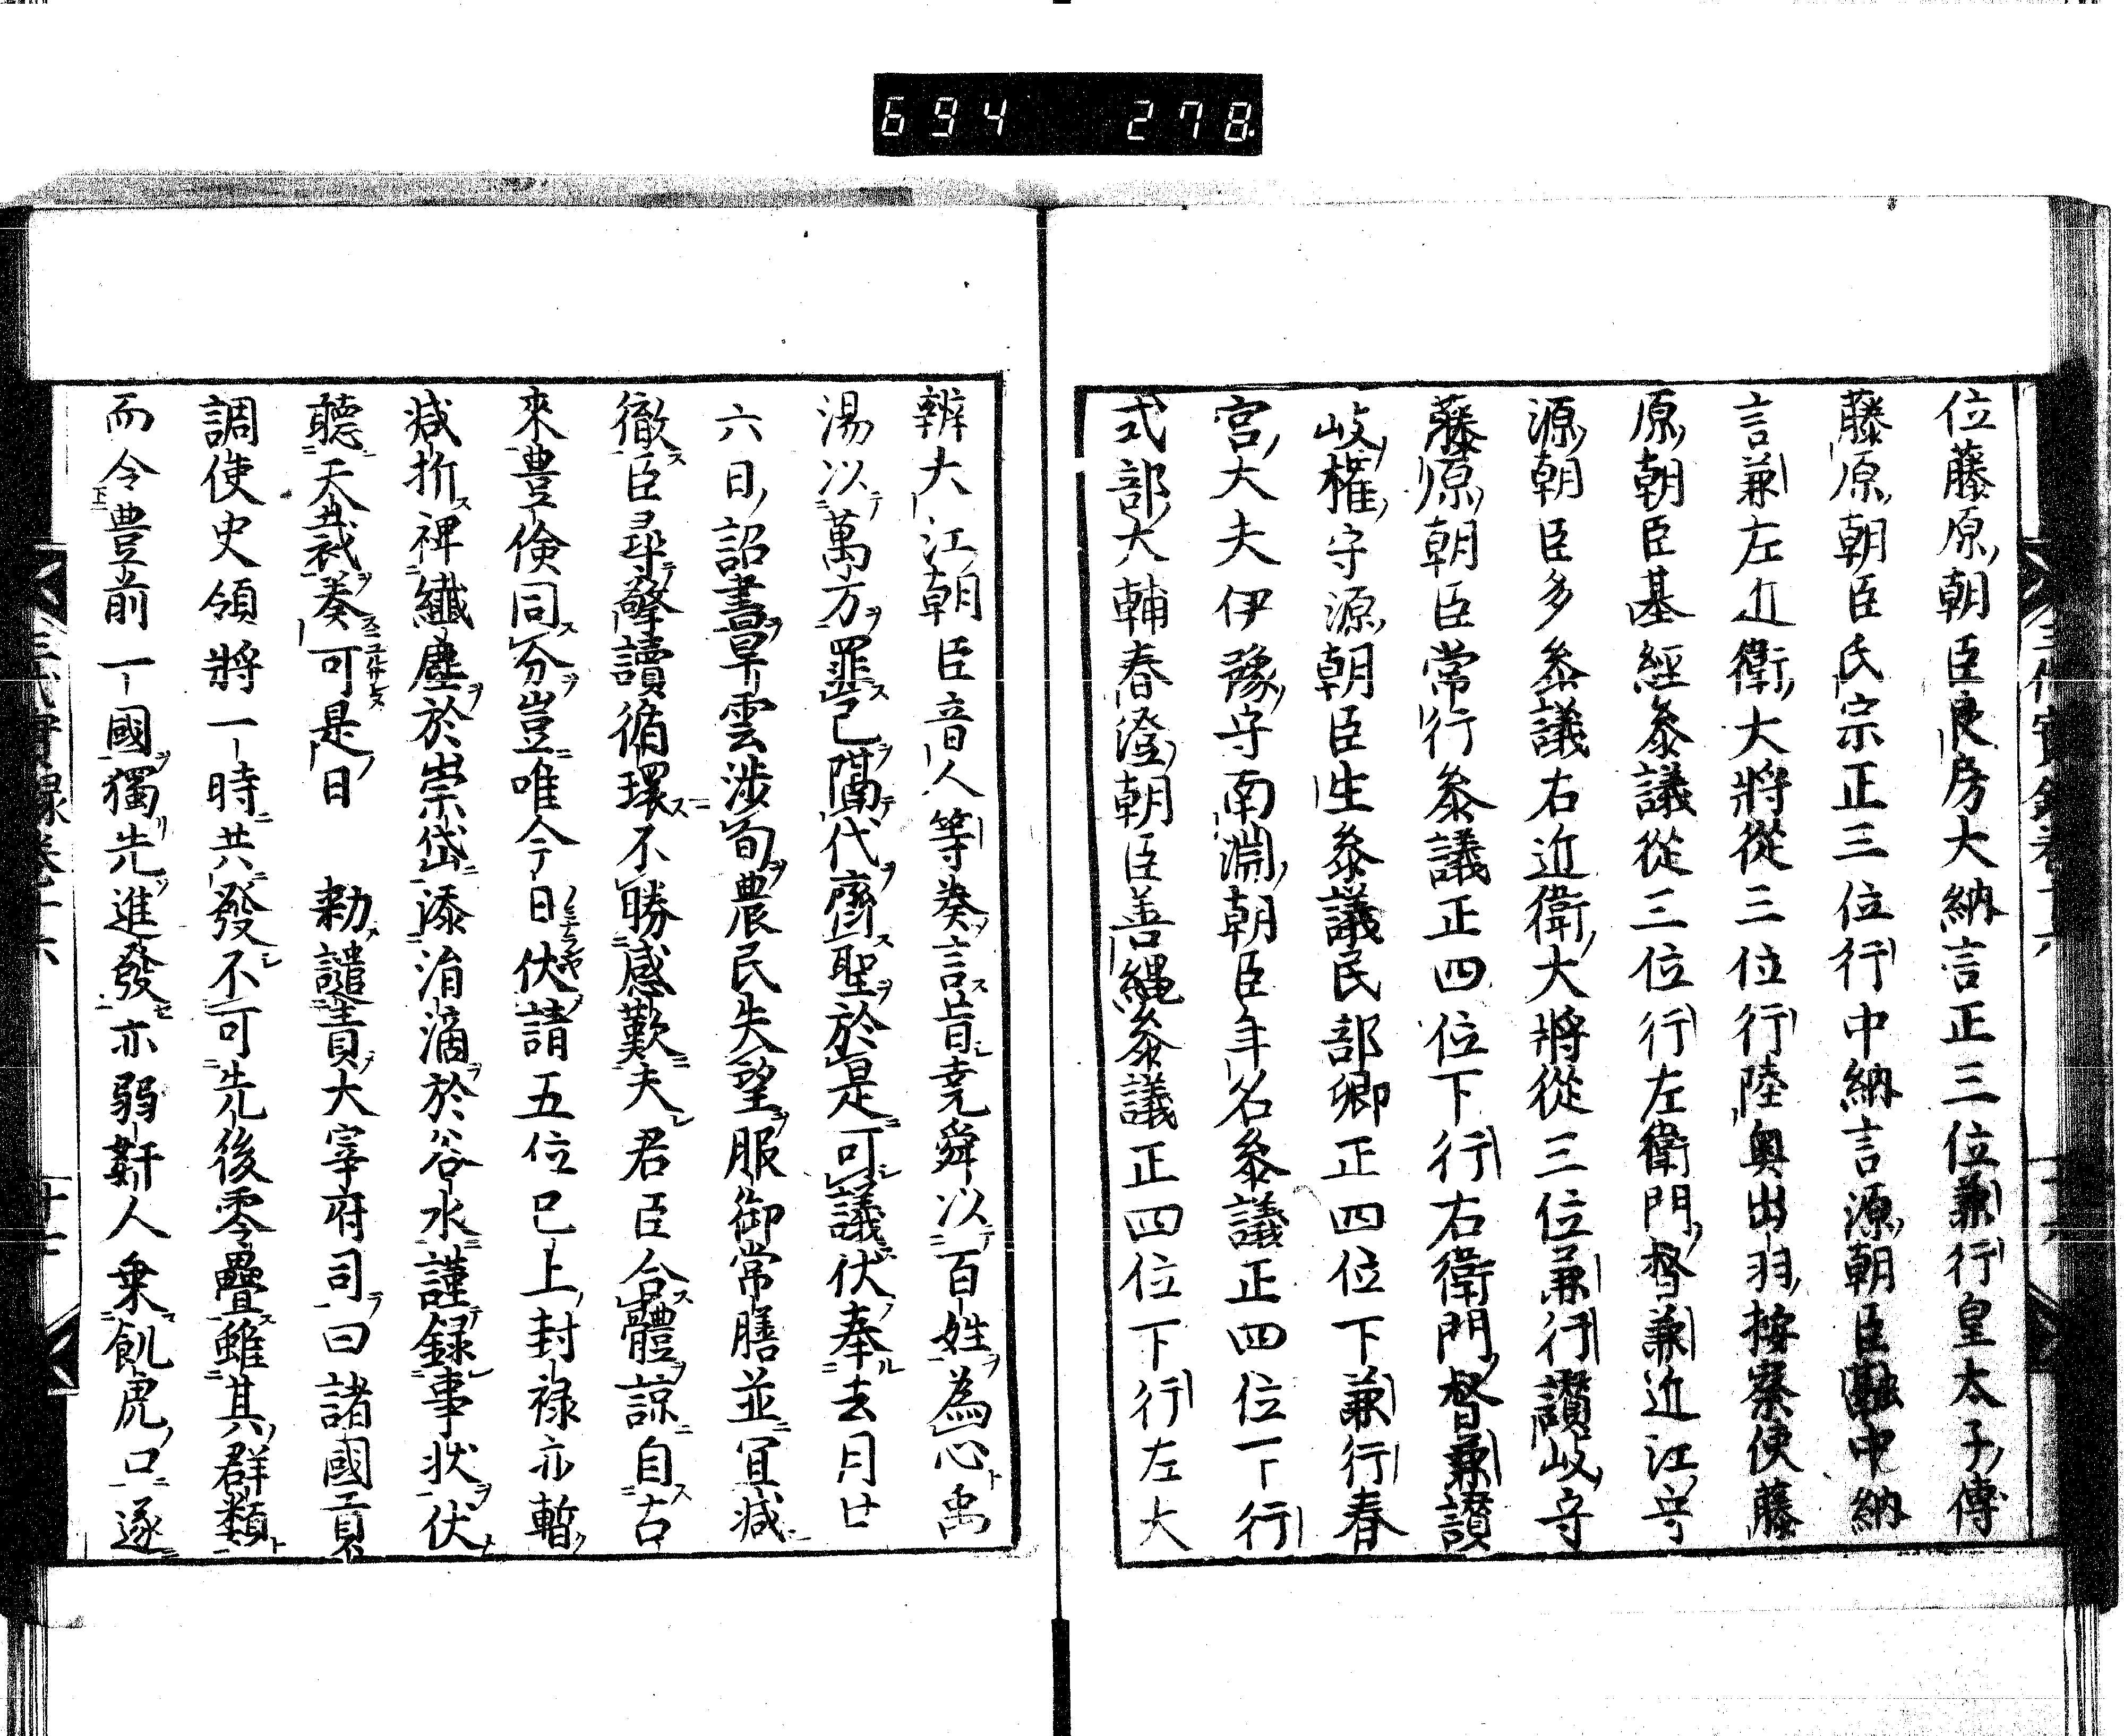 694 278
位藤原朝臣良房大納言正三位兼行皇太子傅
藤原朝臣氏宗正三位行中納言源朝臣融中納
言兼左近衛大將從三位行陸奥出羽按察使藤
原朝臣基經叅議從三位行左衛門督兼近江守
源朝臣多叅議右近衛大將從三位兼行讃岐守
藤原朝臣常行叅議正四位下行右衛門督兼讃
岐權守源朝臣生叅議民部卿正四位下兼行春
宮大夫伊豫守南淵朝臣年名叅議正四位下行
式部大輔春澄朝臣善縄叅議正四位下行左大
辨大江朝臣音人等奏言昔堯舜以百姓為心禹
湯以萬方罪己隔代齊聖於是可議伏奉去月廿
六日詔書旱雲渉旬農民失望服御常膳並冝减
徹臣尋擇讀循環不勝感歎夫君臣合體諒自古
來豊儉同分豈唯今日伏請五位已上封禄亦暫
减折裨纎塵於崇岱添涓滴於谷水謹録事状伏
聽天裁奏可是日 勅譴責大宰府司曰諸國貢
調使史領將一時共發不可先後零疊雖其群類
而令豊前一國獨先進發亦弱新人乗飢虎口遂